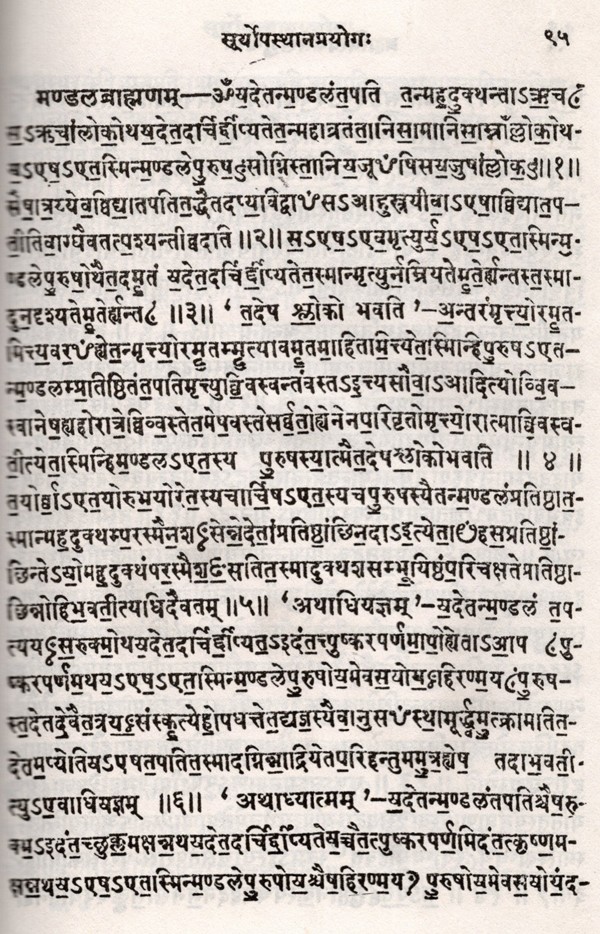 सूर्योपस्थानप्रयोगः ९५
मण्डलब्राह्मणम्—ॐयदेतन्मण्डलंतपति तन्महदुक्थन्ताऽऋचः
सऽऋचांलोकोथयदेतदर्चिर्द्दीप्यतेतन्महाव्रतंतानिसामानिससाम्नाँल्लोकोथ-
यऽएषऽएतस्मिन्मण्डलेपुरुषःसोग्निस्तानियजूᳪषिसयजुषांल्लोकः॥१॥
सैषात्रय्येवविद्यातपतितद्धैतदप्यविद्वाᳪसऽआहुस्त्रयीवाऽएषाविद्यातप-
तीतिवाग्घैवतत्पश्यन्तीवदाति॥२॥सऽएषऽएवमृत्युर्यऽएषऽएतस्मिन्म-
ण्डलेपुरुषोथैतदमृतं यदेतदर्चिर्द्दीप्यतेतस्मान्मृत्युर्नम्रियतेमृतेर्ह्यन्तस्तस्मा-
दुनदृश्यतेमृतेर्ह्यन्तः ॥३॥ ‘तदेष श्लोको भवति’—अन्तरंमृत्त्योरमृत-
मित्त्यवरᳪह्येतन्मृत्त्योरमृतम्मृत्यावमृतमाहितामित्त्येतस्मिन्हिपुरुषऽएत-
न्मण्डलम्प्रतिष्ठितंतपतिमृत्त्युर्व्विवस्वन्तंवस्तऽइत्त्यसौवाऽआदित्योव्विव-
स्वानेषह्यहोरात्रेव्विवस्तेतमेषवस्तेसर्व्वतोह्येनेनपरिवृतोमृत्त्योरात्माव्विवस्व-
तीत्येतास्मिन्हिमण्डलऽएतस्य पुरुषस्यात्मैतदेषश्लोकोभवति ॥ ४ ॥
तयोर्व्वाऽएतयोरुभयोरेतस्यचार्चिषऽएतस्यचपुरुषस्यैतन्मण्डलंप्रतिष्ठात-
स्मान्महदुक्थम्परस्मैनशᳪसेन्नेदेतांप्रतिष्ठांछिनदाऽइत्येताᳪहसप्रतिष्ठां-
छिन्तेऽयोमहदुक्थंपरस्मैशᳪसतितस्मादुक्थशसम्भूयिष्ठंपरिचक्षतेप्रतिष्ठा-
छिन्नोहिभवतीत्यधिदैवतम्॥५॥ ‘अथाधियज्ञम्’—यदेतन्मण्डलं तप-
त्ययᳪसरुक्मोथयदेतदर्चिर्द्दीप्यतऽइदंतत्पुष्करपर्णमापोह्येताऽआपः पु-
ष्करपर्णमथयऽएषऽएतस्मिन्मण्डलेपुरुषोयमेवसयोयᳪहिरण्मयःपुरुष-
स्तदेतदेवैतत्रयᳪसंस्कृत्येहोपधत्तेतद्यज्ञस्यैवानुसᳪस्थामूर्द्ध्वमुत्क्रामातित-
देतमप्येतियऽएषतपतितस्मादग्निन्नाद्रियेतपरिहन्तुममुत्रह्येष तदाभवती-
त्युऽएवाधियज्ञम् ॥६॥ ‘अथाध्यात्मम्’—यदेतन्मण्डलंतपतियश्चैषरु-
क्मऽइदंतच्छुक्लमक्षन्नथयदेतदर्चिर्द्दीप्यतेयच्चैतत्पुष्करपर्णमिदंतत्कृष्णम-
क्षन्नथयऽएषऽएतास्मिन्मण्डलेपुरुषोयश्चैषहिरण्मयः पुरुषोयमेवसयोयंद-